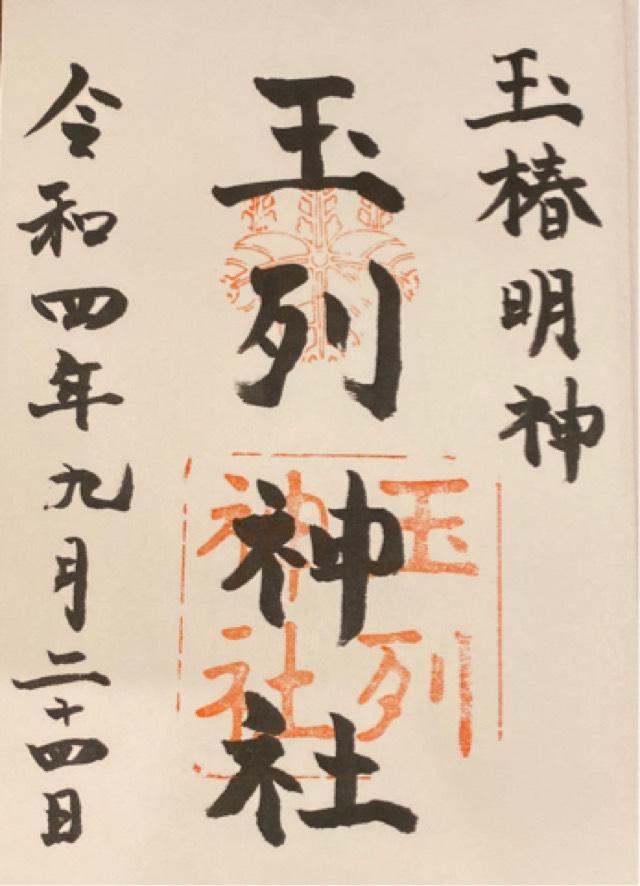 玉椿明神
玉列神社
玉列
神社
令和四年九月二十四日